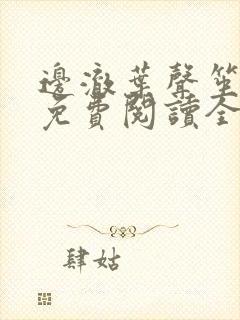 邊澈葉聲笙
免費閱讀全
肆姑